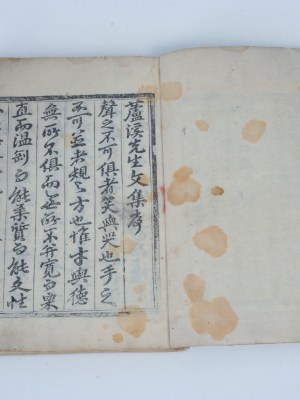 蘆溪先生文集序
聲之不可俱者笑與哭也手之
不可並者規之方也惟才與德
無所不俱而無所不并寬而栗
直而溫剛而能柔質而能文性